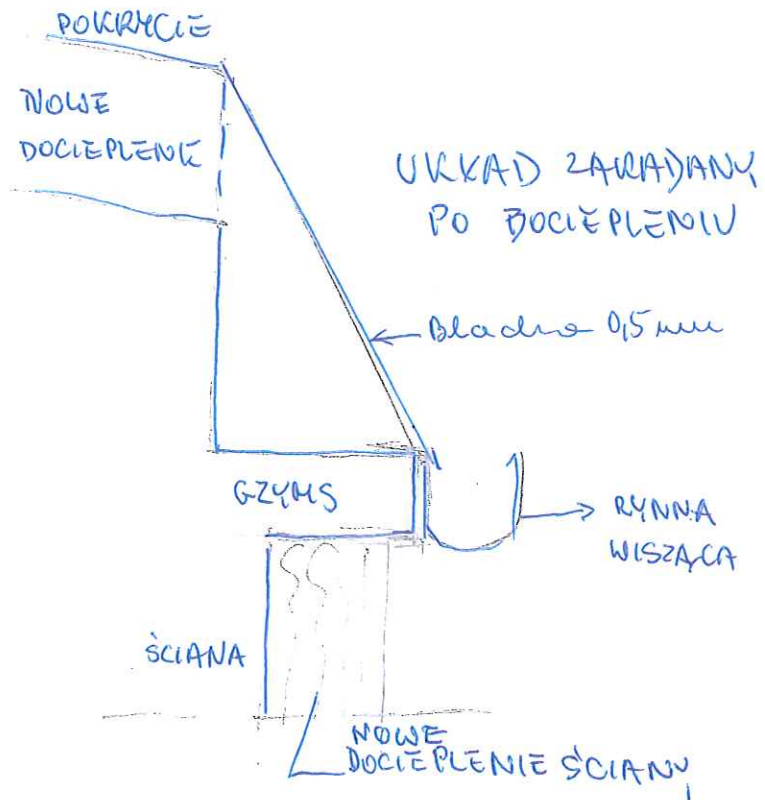 POKRYCIE
NOWE
DOCIEPLENIE
UKŁAD ZAKŁADANY
PO DOCIEPLENIU
Blacha 0,5 mm
GZYMS
RYNNA
WISZĄCA
ŚCIANA
NOWE
DOCIEPLENIE ŚCIANY